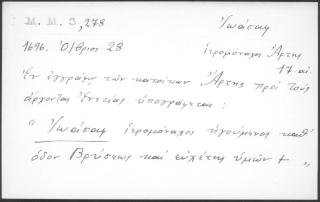 Μ. Μ. 3, 278 Ἰωάσαφ
1696. Ὀ/βριος 28 ἱερομόναχος Ἄρτης
17 αἰ.
Ἐν ἐγγράφῳ τῶν κατοίκων Ἄρτης πρὸς τοὺς
ἄρχοντας Ἑνετίας ὑπογράφεται :
" Ἰωάσαφ ἱερομόναχος ἡγούμενος καθ'
ὁδὸν Βρύσεως καὶ εὐχέτης ὑμῶν + "